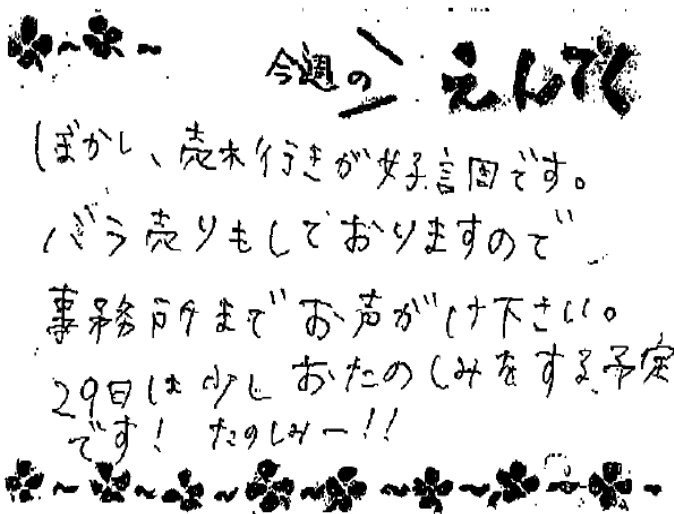 今週の えんでく
ぼかし、売れ行きが好調です。
バラ売りもしておりますので
事務所までお声がけ下さい。
29日は少しおたのしみをする予定
です! たのしみー!!